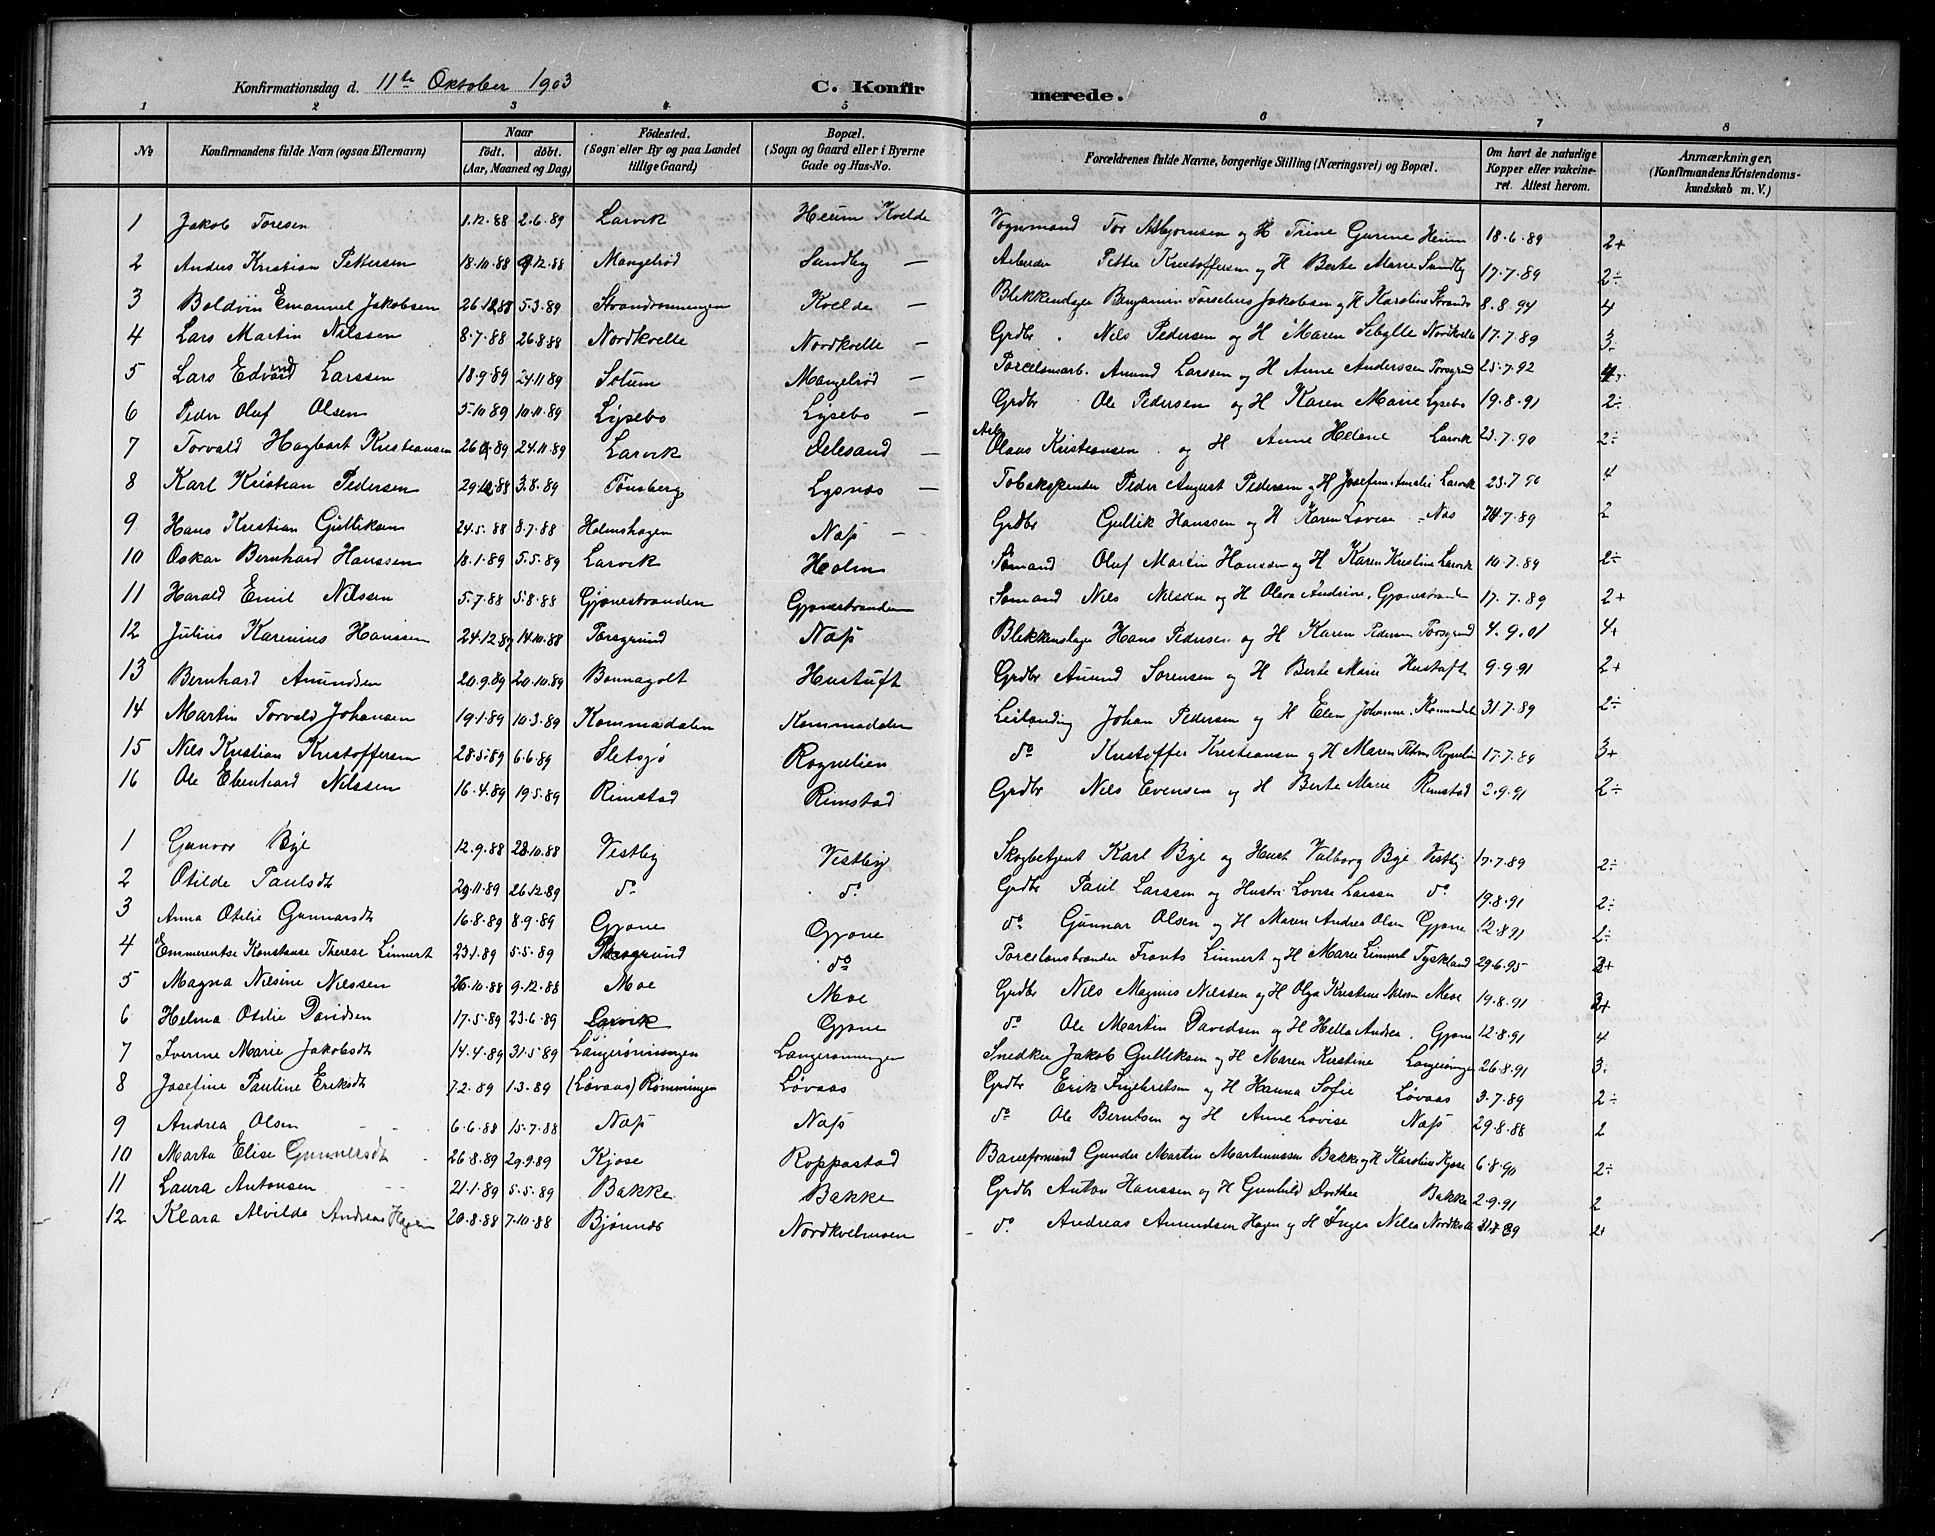 Konfirmationsdag d. 11te Oktober 1903 C. Konfirmerede.
1 2 3 4 5 6 7 8
No Konfirmandens fulde Navn (ogsaa Efternavn) Naar født. døbt. (Aar, Maaned og Dag) Fødested. (Sogn eller By og paa Landet tillige Gaard) Bopæl. (Sogn og Gaard eller i Byerne Gade og Hus-No. Forældrenes fulde Navne, borgerlige Stilling (Næringsvei) og Bopæl. Om havt de naturlige Kopper eller vakcineret. Attest herom. Anmærkninger. (Konfirmandens Kristendomskundskab m. V.)
1 Jakob Toresen 1.12.88 2.6.89 Larvik Heum Kvelde Vognmand Tor Asbjørnsen og H Trine Gurine Heum 18.6.89 2+
2 Anders Kristian Pettersen 18.10.88 9.12.88 Mangelrød Sundby — Arbeider Petter Kristoffersen og H Berte Marie Sundby 17.7.89 2÷
3 Boldvin Emanuel Jakobsen 26.12.88 5.3.89 Strandrønningen Kvelde — Blikkenslager Benjamin Torselius Jakobsen og H Karoline 8.8.94 4
4 Lars Martin Nilssen 8.7.88 26.8.88 Nordkvelle Nordkvelle — Grdbr. Nils Pedersen og H Maren Sibylle Nordkvelle 17.7.89 3
5 Lars Edvard Larssen 18.9.89 24.11.89 Solum Mangelrød — Porcelsmarb. Amund Larssen og H Anne Anderssen Porsgrund 25.7.92 4
6 Peder Oluf Olsen 5.10.89 10.11.89 Lysebo Lysebo — Grdbr Ole Pedersen og H Karen Marie Lysebo 19.8.91 2÷
7 Torvald Hagbart Kristiansen 24.11.89 Larvik Odlesand — Arb Olaus Kristiansen og H Anne Helene Larvik 23.7.90 2÷
8 Karl Kristian Pedersen 29.12.88 3.8.89 Tønsberg Lysnæs — Tobakspinder Peder August Pedersen og H Josefine Amalie Larvik 23.7.90 4
9 Hans Kristian Gulliksen 24.5.88 8.7.88 Holmshagen Næss — Grdbr Gullik Hanssen og H Karen Lovise Næs 7.89 2
10 Oskar Bernhard Hanssen 18.1.89 5.5.89 Larvik Holm Sømand Oluf Martin Hanssen og H Karen Kristine Larvik 10.7.89 2÷
11 Harald Emil Nilssen 5.7.88 5.8.88 Gjønestranden Gjønestranden Sømand Nils Nilssen og H Olava Andrine, Gjønestranden 17.7.89 2+
12 Julius Karenius Hanssen 24.12.87 14.10.88 Porsgrund Næss Blikkenslager Hans Pedersen og H Karen Pedersen Porsgrund 4.9.01 4+
13 Bernhard Amundsen 20.9.89 20.10.89 Bonnagolt Hustuft Grdbr Amund Sørensen og H Berte Marie Hustuft 9.9.91 2+
14 Martin Torvald Johansen 19.1.89 10.3.89 Kommadalen Kommadalen Leilænding Johan Pedersen og H Elen Johanne, Kommadalen 31.7.89 2÷
15 Nils Kristian Kristoffersen 28.5.89 6.6.89 Sletsjø Rognelien do Kristoffer Kristiansen og H Maren Rognelien 17.7.89 3+
16 Ole Eberhard Nilssen 16.4.89 19.5.89 Rimstad Rimstad Grdbr Nils Evensen og H Berte Marie Rimstad 2.9.91 2÷
1 Gunvor Bye 12.9.88 28.10.88 Vestby Vestby Skogbetjent Karl Bye og Hust Valborg Bye Vestby 17.7.89 2÷
2 Otilde Paulsdt 29.11.89 26.12.89 do do Grdbr Paul Larssen og Hustru Lovise Larssen do 19.8.91 2÷
3 Anna Otilie Gunnarsdt 16.8.89 8.9.89 Gjøne Gjøne do Gunnar Olsen og H Maren Andrea Olsen Gjøne 12.8.91 2÷
4 Emmerentse Konstanse Therese Linnert 23.1.89 5.5.89 Porsgrund do Porcelænsbrænder Frants Linnert og H Marie Linnert Tyskland 29.6.95 2+
5 Magna Nilsine Nilssen 26.10.88 9.12.88 Moe Moe Grdbr Nils Magnus Nilssen og H Olga Kristine Nilssen Moe 19.8.91 3+
6 Helma Otilie Davidsen 17.5.89 23.6.89 Larvik Gjøne do Ole Martin Davidsen og H Hella Andrea, Gjøne 12.8.91 4
7 Iverine Marie Jakobsdt 14.4.89 31.5.89 Langerønningen Langerønningen Snedker Jakob Gulliksen og H Maren Kristine Langerøningen 26.8.91 3
8 Josefine Pauline Eriksdt 7.2.89 1.3.89 (Løvaas) Rønningen Løvaas Grdbr Erik Ingebretsen og H Hanna Sofie Løvaas 3.7.89 2÷
9 Andrea Olsen 6.6.88 15.7.88 Næss Næss do Ole Berntsen og H Anne Lovise Næss 29.8.88 2
10 Marta Elise Gunnersdt 26.8.89 29.9.89 Kjose Roppastad Baneformand Gunder Martin Martinussen Bakke og H Karoline Kjose 6.8.90 2÷
11 Laura Antonsen 21.1.89 5.5.89 Bakke Bakke Grdbr Anton Hanssen og H Gunhild Dorthea Bakke 2.9.91 2
12 Klara Alvilda Andreas Hagen 20.8.88 7.10.88 Bjønnes Nordkvelhusen do Andreas Amundsen Hagen og H Inger Nilla Nordkvelle 2+